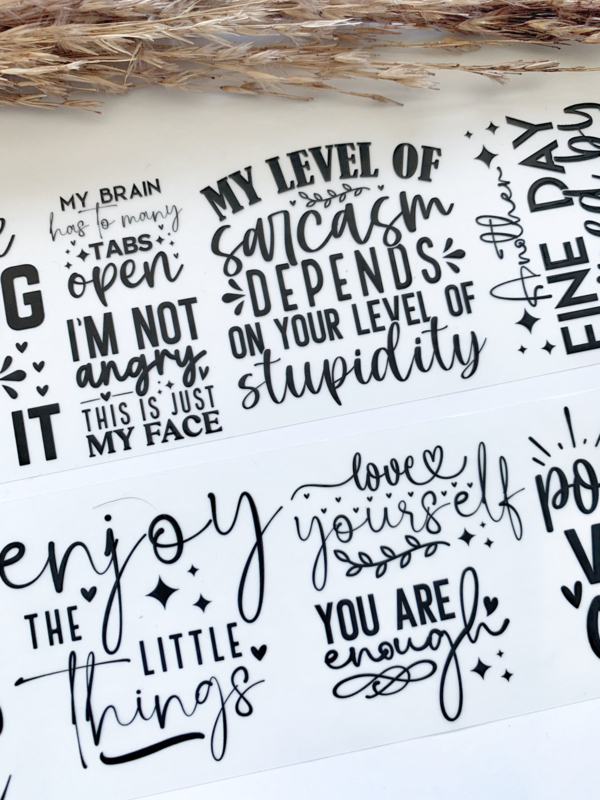 MY BRAIN
has to many
TABS
open
I'M NOT
angry
THIS IS JUST
MY FACE
MY LEVEL OF
sarcasm
DEPENDS
ON YOUR LEVEL OF
stupidity
Another
FINE DAY
IT
enjoy
THE
LITTLE
things
love
yourself
YOU ARE
enough